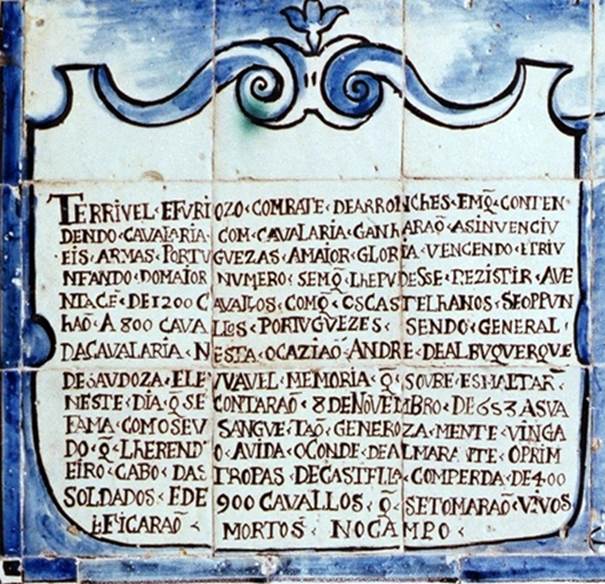 TERRIVEL · EFURIOZO · COMBATE · DEARRONCHES · EMQ̃ · CONTEN·
DENDO · CAVALARIA · COM · CAVALARIA · GANHARAÕ · ASINVENCIV
EIS · ARMAS · PORTUGUEZAS · AMAIOR · GLORIA · VENCENDO · ETRIV
NFANDO · DOMAIOR NUMERO · SEMQ̃ · LHEPUDESSE · REZISTIR · AVE
NTACẼ · DE1200 CAVALLOS · COMQ̃ · OSCASTELHANOS · SEOPPUN
HAÕ · A 800 CAVALLOS · PORTUGUEZES · SENDO · GENERAL ·
DACAVALARIA · NESTA · OCAZIAÕ · ANDRE · DEALBUQUERQUE
DESAUDOZA · ELEVVAVEL · MEMORIA · Q̃ · SOVBE · ESMALTAR ·
NESTE · DIA · Q̃ SE CONTARAÕ · 8 DENOVEMBRO · DE 653 ASVA
FAMA · COMOSEV SANGVE · TAÕ · GENEROZA · MENTE · VINGA
DO · Q̃ · LHERENDEO · AVIDA · OCONDE · DEALMARANTE · OPRIM
EIRO · CABO · DAS TROPAS · DECASTELLA · COMPERDA · DE400
SOLDADOS · EDE 900 CAVALLOS · Q̃ · SETOMARAÕ · VIVOS
EFICARAÕ · MORTOS · NOCAMPO ·